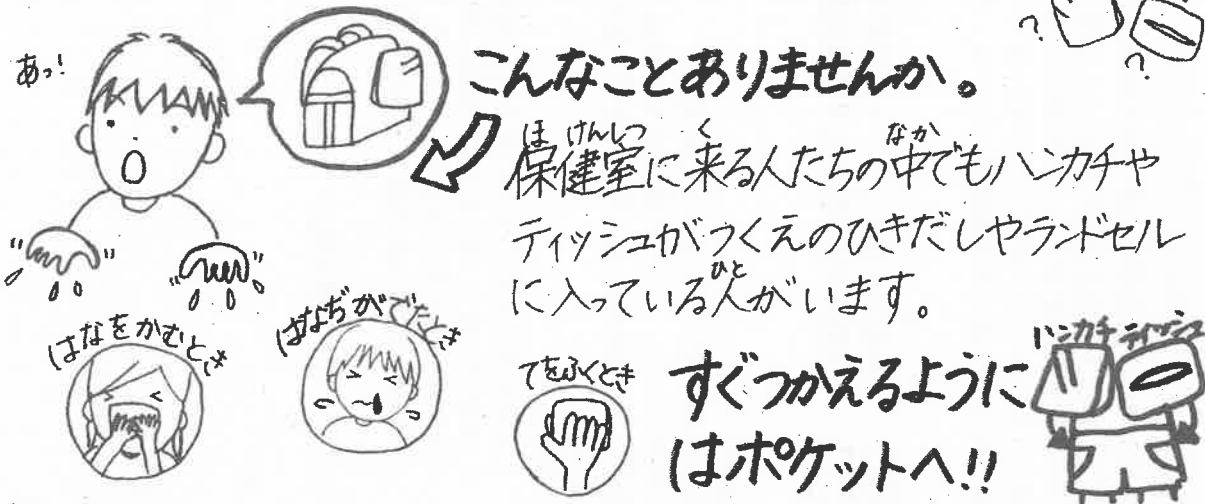 あっ!
こんなことありませんか。
保健室に来る人たちの中でもハンカチや
ティッシュがつくえのひきだしやランドセル
に入っている人がいます。
はなをかむとき
はなぢがでたとき
てをふくとき
すぐつかえるように
はポケットへ!!
ハンカチ ティッシュ